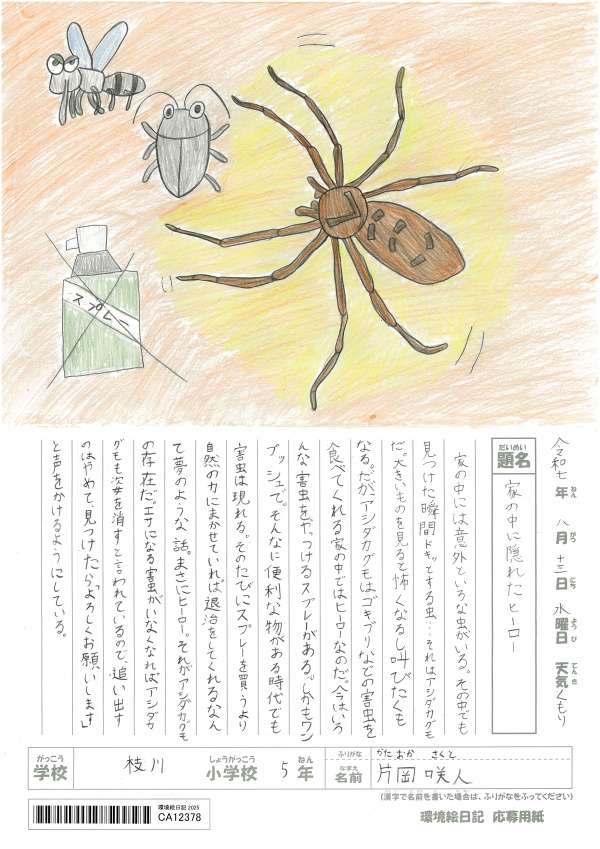 スプレー
令和七年 八月十三日 水曜日 天気くもり
だいめい
題名 家の中に隠れたヒーロー
家の中には意外といろんな虫がいる。その中でも
見つけた瞬間ドキッとする虫…それはアシダカグモ
だ。大きいものを見ると怖くなるし叫びたくも
なる。だが、アシダカグモはゴキブリなどの害虫を
食べてくれる家の中ではヒーローなのだ。今はいろ
んな害虫をやっつけるスプレーがある。しかもワン
プッシュで。そんなに便利な物がある時代でも
害虫は現れる。そのたびにスプレーを買うより
自然の力にまかせていれば、退治をしてくれるなん
て夢のような話。まさにヒーロー。それがアシダカグモ
の存在だ。エサになる害虫がいなくなれば、アシダカ
グモも姿を消すと言われているので、追い出す
のはやめて、見つけたら「よろしくお願いします」
と声をかけるようにしている。
がっこう しょうがっこう ねん
学校 枝川 小学校 5年
ふりがな かたおか さくと
なまえ
名前 片岡 咲人
(漢字で名前を書いた場合は、ふりがなをふってください)
環境絵日記 2025
CA12378
環境絵日記 応募用紙